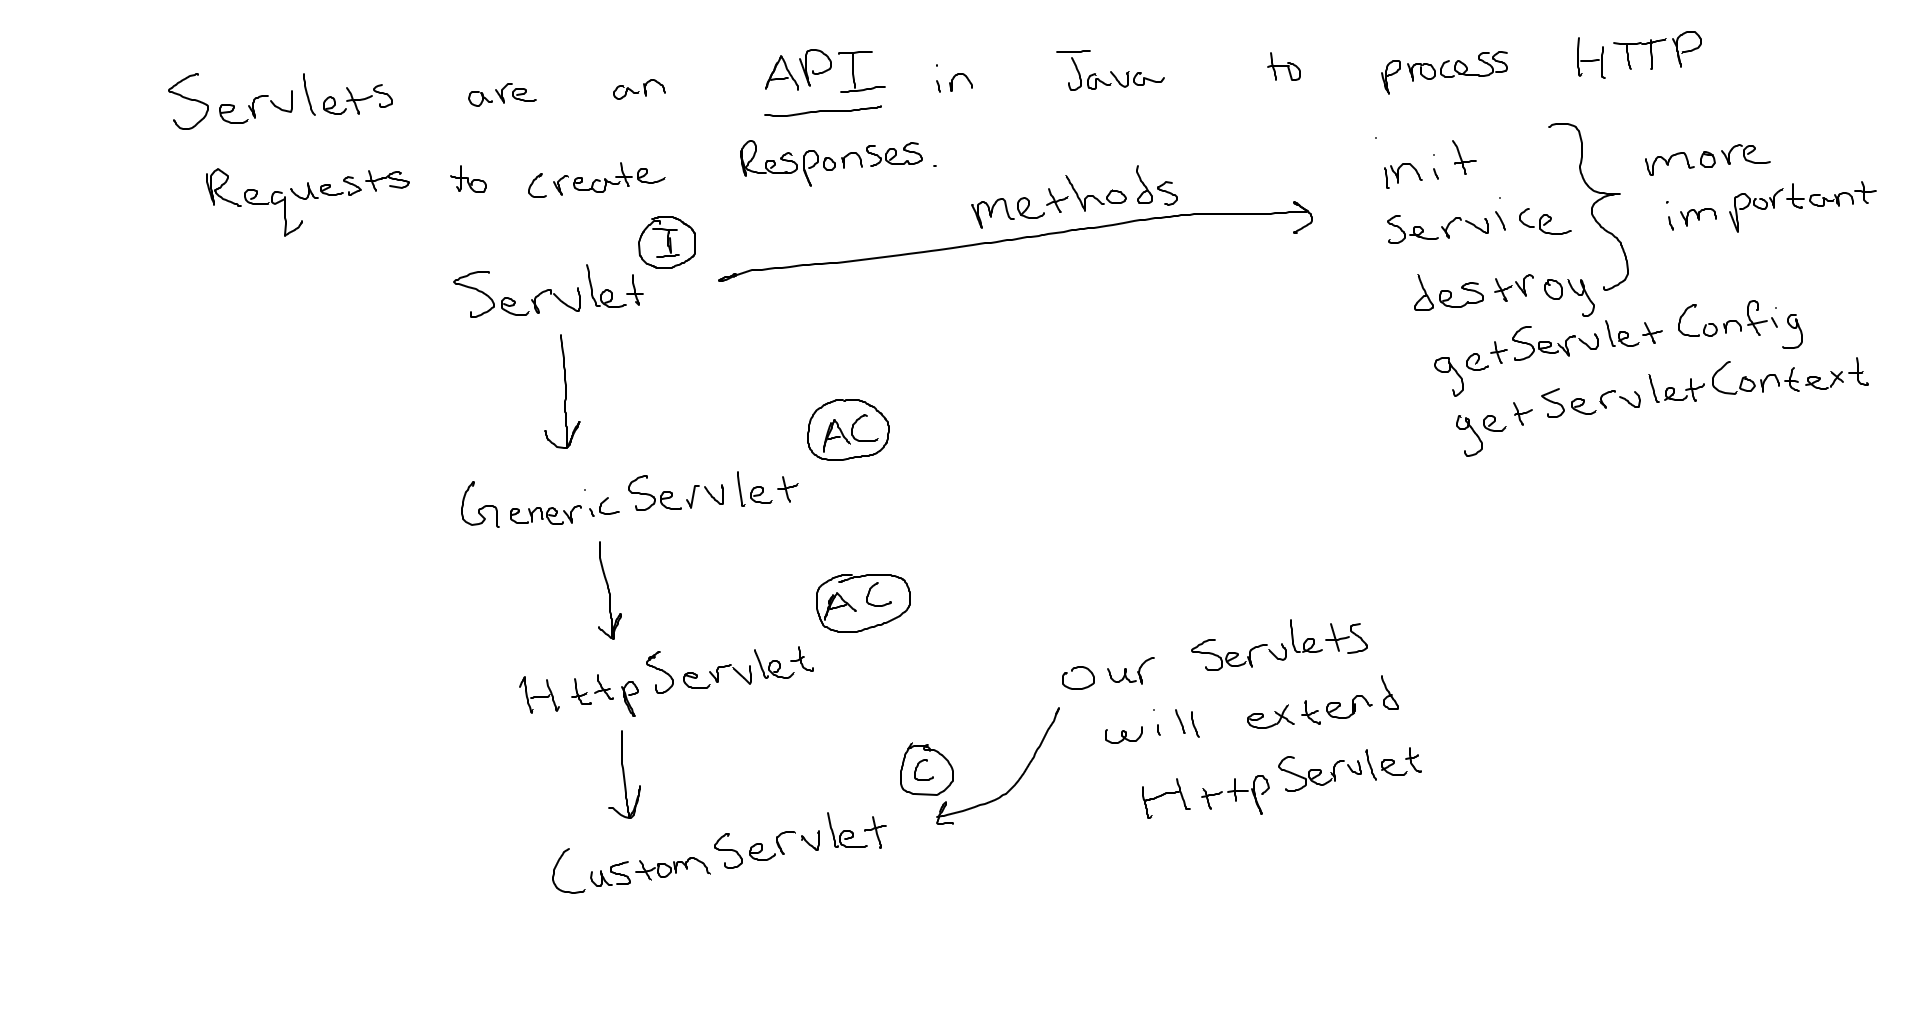 Servlets are an API in Java to process HTTP
Requests to create Responses.
methods
init
service
destroy
getServletConfig
getServletContext
more
important
Servlet
I
GenericServlet
AC
HttpServlet
AC
CustomServlet
C
Our Servlets
will extend
HttpServlet